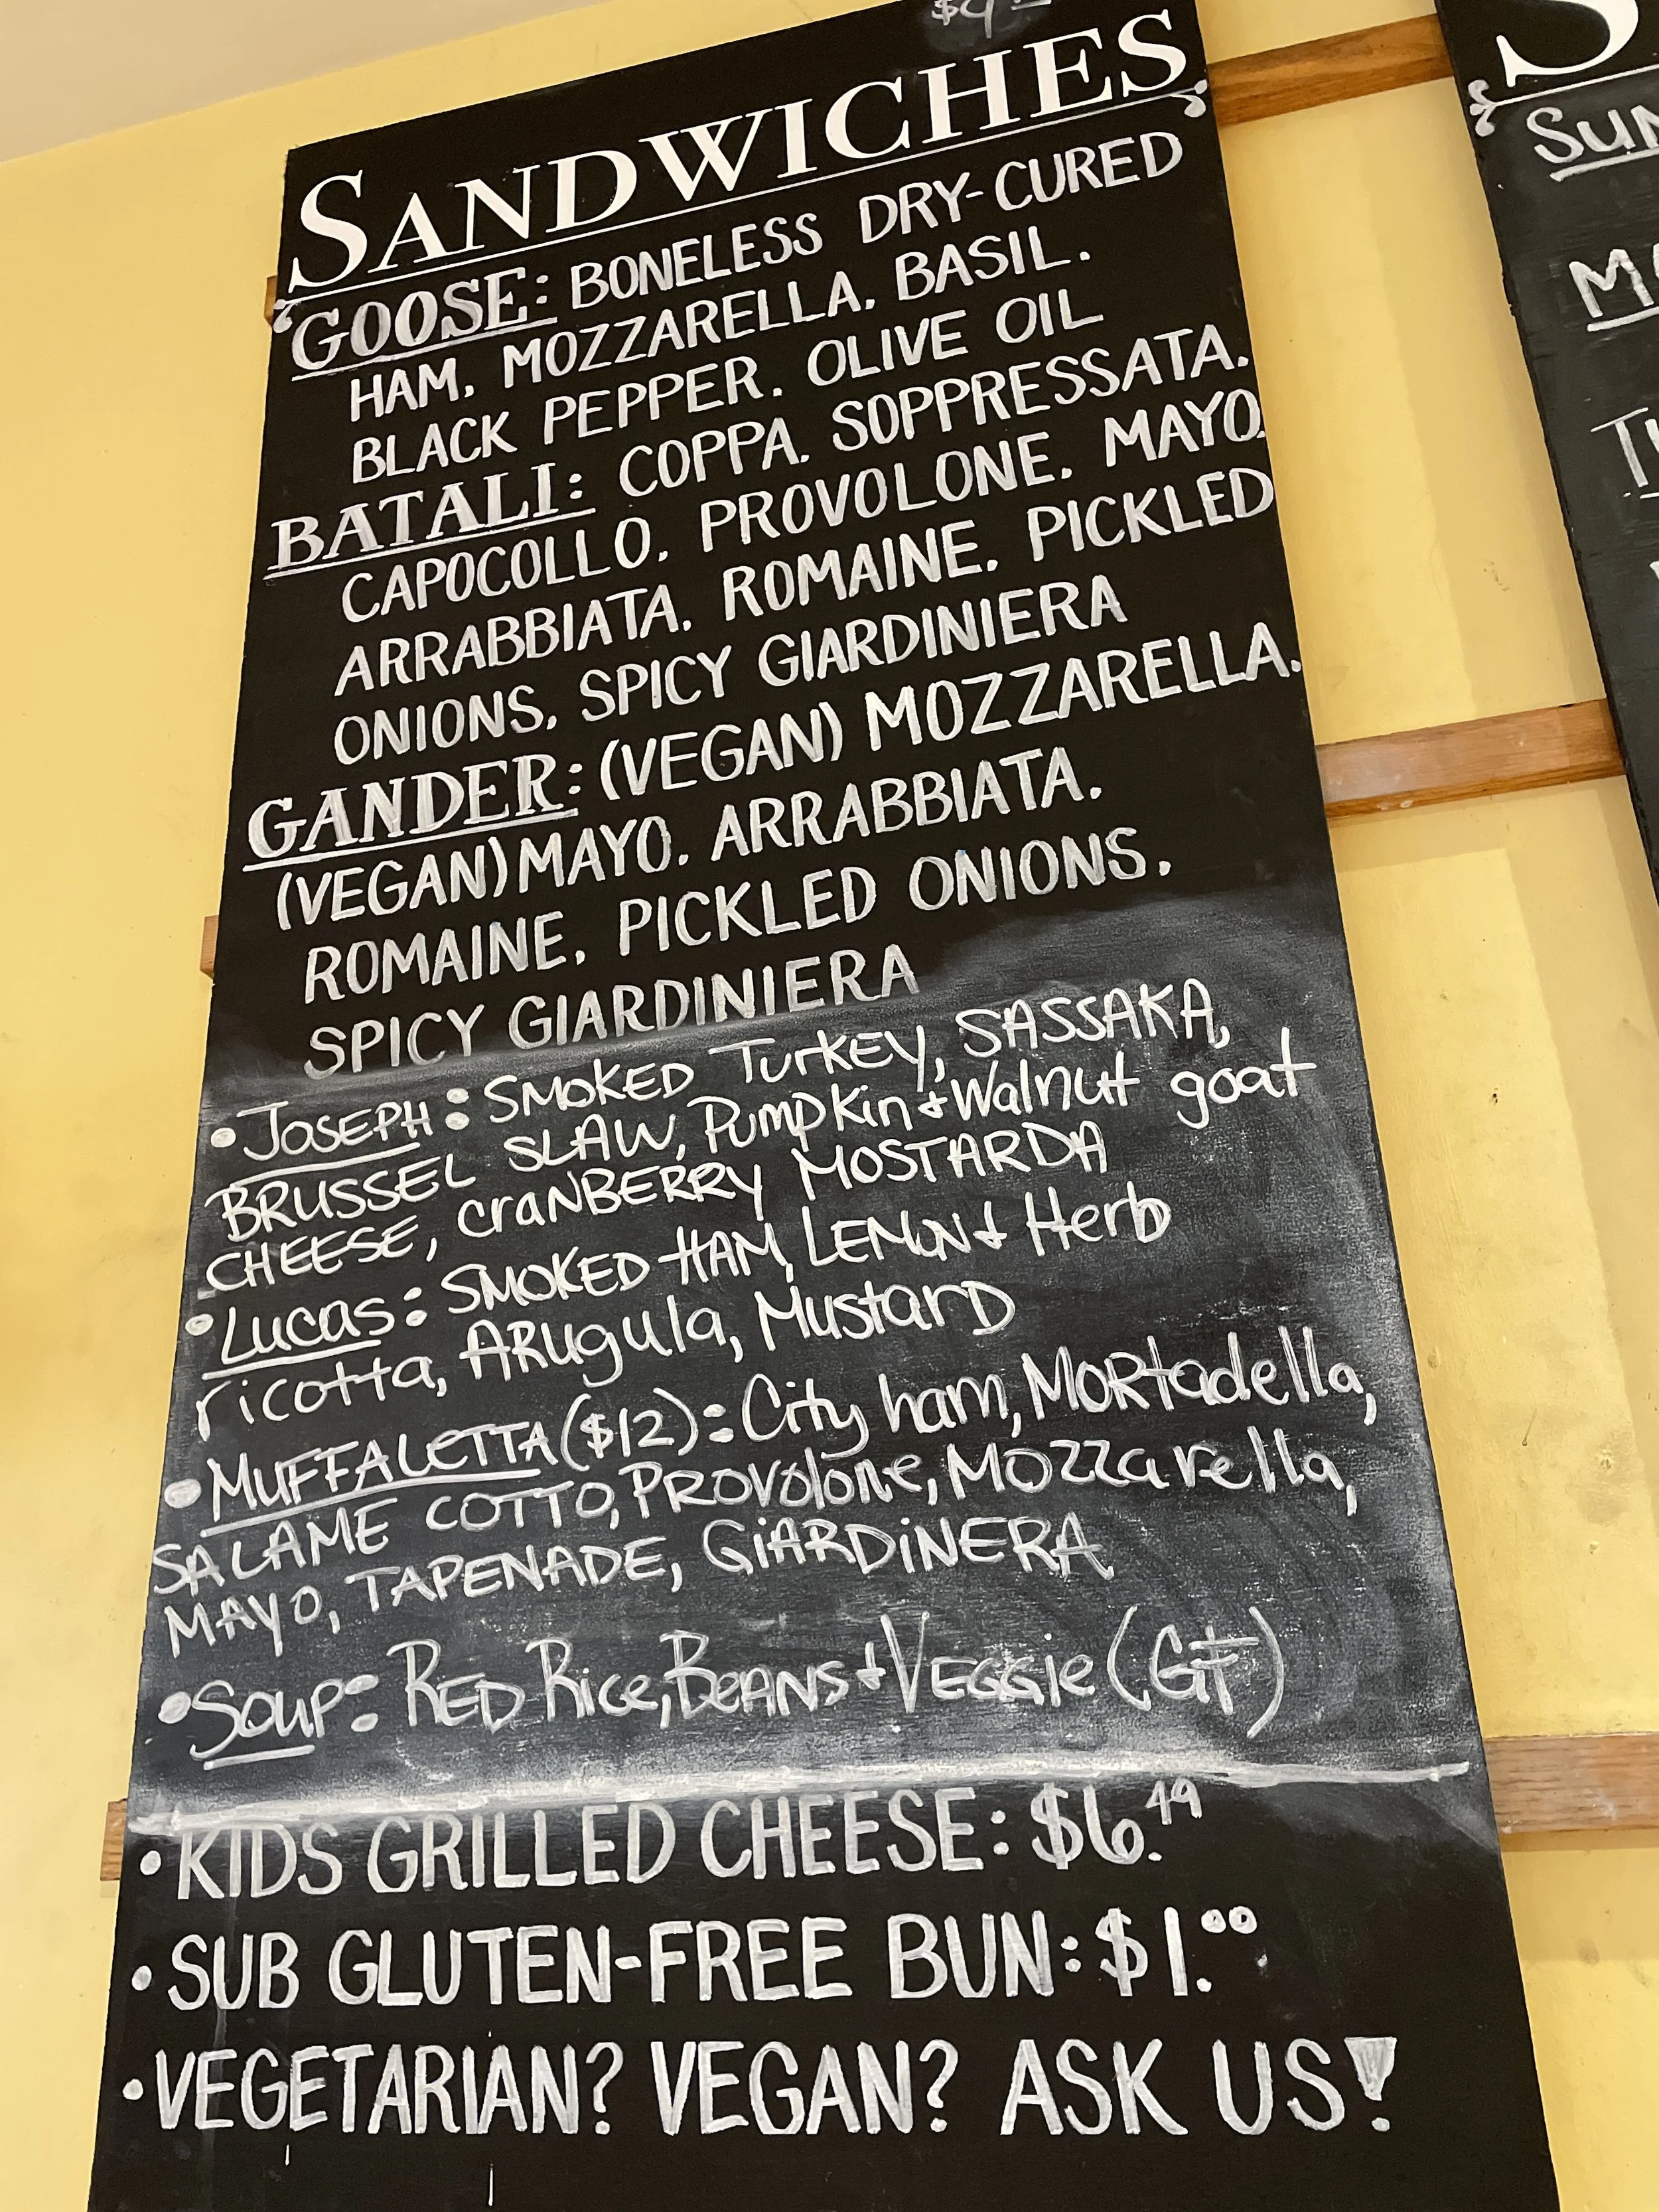 SANDWICHES
GOOSE: BONELESS DRY-CURED
HAM, MOZZARELLA, BASIL,
BLACK PEPPER, OLIVE OIL
BATALI: COPPA, SOPPRESSATA,
CAPOCOLLO, PROVOLONE, MAYO,
ARRABBIATA, ROMAINE, PICKLED
ONIONS, SPICY GIARDINIERA
GANDER: (VEGAN) MOZZARELLA,
(VEGAN) MAYO, ARRABBIATA,
ROMAINE, PICKLED ONIONS,
SPICY GIARDINIERA
• JOSEPH: SMOKED TurKEY, SASSAKA,
BRUSSEL SLAW, Pumpkin + Walnut goat
CHEESE, CraNBERRY MOSTARDA
• Lucas: SMOKED HAM, LEMON + Herb
ricotta, ARugula, MustarD
• MUFFALETTA ($12): City ham, MORtadella,
SALAME COTTO, PROVolone, Mozzarella,
MAYO, TAPENADE, GiARDiNERA
• Soup: RED Rice, BeANS + VEGGie (GF)
• KIDS GRILLED CHEESE: $6.49
• SUB GLUTEN-FREE BUN: $1.00
• VEGETARIAN? VEGAN? ASK US!